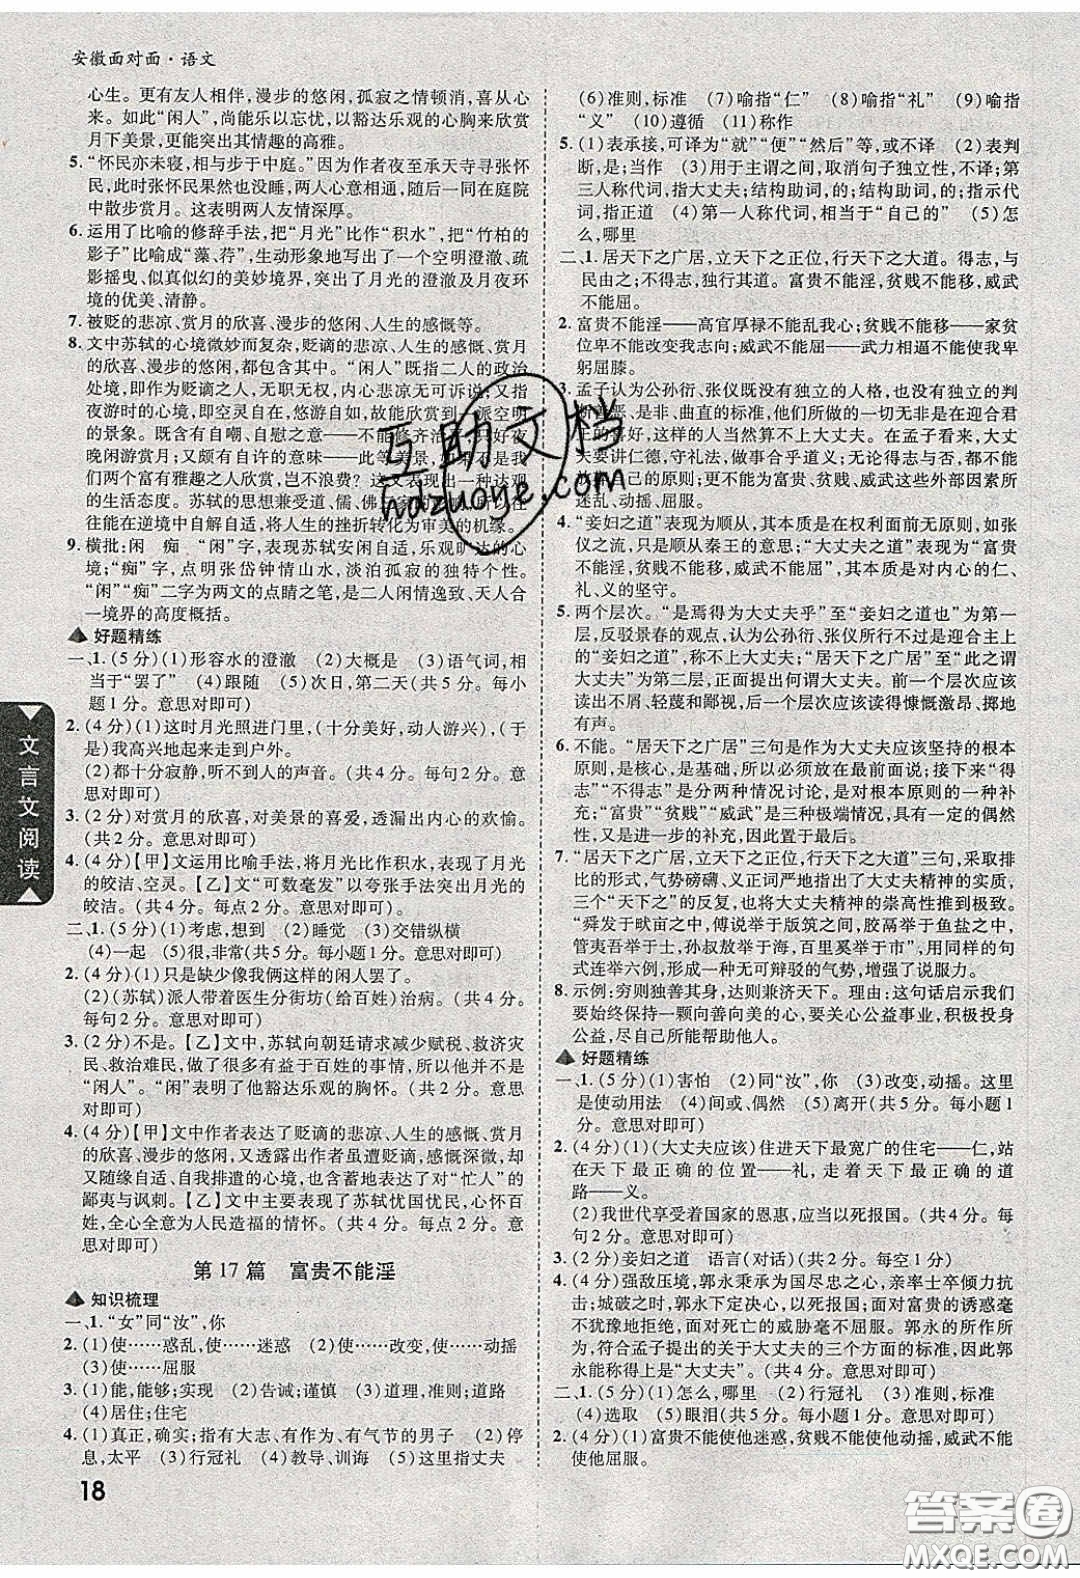 安徽面对面·语文
心生。更有友人相伴,漫步的悠闲,孤寂之情顿消,喜从心
来。如此“闲人”,尚能乐以忘忧,以豁达乐观的心胸来欣赏
月下美景,更能突出其情趣的高雅。
5. “怀民亦未寝,相与步于中庭。”因为作者夜至承天寺寻张怀
民,此时张怀民果然也没睡,两人心意相通,随后一同在庭院
中散步赏月。这表明两人友情深厚。
6. 运用了比喻的修辞手法,把“月光”比作“积水”,把“竹柏的
影子”比喻成“藻、荇”,生动形象地写出了一个空明澄澈、疏
影摇曳、似真似幻的美妙境界,突出了月光的澄澈及月夜环
境的优美、清静。
7. 被贬的悲凉、赏月的欣喜、漫步的悠闲、人生的感慨等。
8. 文中苏轼的心境微妙而复杂,贬谪的悲凉、人生的感慨、赏月
的欣喜、漫步的悠闲,都包含其中。“闲人”既指二人的政治
处境,即作为贬谪之人,无职无权,内心悲凉无可诉说;又指
夜游时的心境,即空灵自在,悠游自由,故能欣赏到一派空明
的景象。既含有自嘲、自慰之意——不能修齐治平,只好夜
晚闲游赏月;又颇有自许的意味——此等美景,如果不是我
们两个富有雅趣之人欣赏,岂不浪费?这又表现出一种达观
的生活态度。苏轼受到道、儒、佛三家的影响,因此他往
往能在逆境中自解自适,将人生的挫折转化为审美的机缘。
9. 横批:闲 痴 “闲”字,表现苏轼安闲自适,乐观旷达的心
境;“痴”字,点明张岱钟情山水,淡泊孤寂的独特个性。
“闲”“痴”二字为两文的点睛之笔,是二人闲情逸致、天人合
一境界的高度概括。
好题精练
一、1. (5分)(1)形容水的澄澈 (2)大概是 (3)语气词,相
当于“罢了” (4)跟随 (5)次日,第二天(共5分。每小
题1分。意思对即可)
2. (4分)(1)这时月光照进门里,(十分美好,动人游兴),(于
是)我高兴地起来走到户外。
(2)都十分寂静,听不到人的声音。(共4分。每句2分。意
思对即可)
3. (2分)对赏月的欣喜,对美景的喜爱,透漏出内心的欢愉。
(共2分。意思对即可)
4. (4分)【甲】文运用比喻手法,将月光比作积水,表现了月光
的皎洁、空灵。【乙】文“可数毫发”以夸张手法突出月光的
皎洁。(共4分。每点2分。意思对即可)
二、1. (5分)(1)考虑,想到 (2)睡觉 (3)交错纵横
(4)一起 (5)很,非常(共5分。每小题1分。意思对即可)
2. (4分)(1)只是缺少像我俩这样的闲人罢了。
(2)(苏轼)派人带着医生分街坊(给百姓)治病。(共4分。
每句2分。意思对即可)
3. (2分)不是。【乙】文中,苏轼向朝廷请求减少赋税、救济灾
民、救治难民,做了很多有益于百姓的事情,因此他不是
“闲人”。“闲”表明了他豁达乐观的胸怀。(共2分。意思
对即可)
4. (4分)【甲】文中作者表达了贬谪的悲凉、人生的感慨、赏月
的欣喜、漫步的悠闲,又透露出作者虽遭贬谪,感慨深微,却
又能随缘自适、自我排遣的心境,也含蓄地表达了对“忙人”的
鄙夷与讽刺。【乙】文中主要表现了苏轼忧国忧民,心怀百
姓,全心全意为人民造福的情怀。(共4分。每点2分。意
思对即可)
第17篇 富贵不能淫
知识梳理
一、1. “女”同“汝”,你
2. (1)使……惑乱,使……迷惑 (2)使……改变,使……动摇
(3)使……屈服
3. (1)能,能够;实现 (2)告诫;谨慎 (3)道理,准则;道路
(4)居住;住宅
4. (1)真正,确实;指有大志、有作为、有气节的男子 (2)停
息,太平 (3)行冠礼 (4)教导、训诲 (5)这里指丈夫
(6)准则,标准 (7)喻指“仁” (8)喻指“礼” (9)喻指
“义” (10)遵循 (11)称作
5. (1)表承接,可译为“就”“便”“然后”等,或不译 (2)表判
断,是;当作 (3)用于主谓之间,取消句子独立性,不译;第
三人称代词,指大丈夫;结构助词,的;结构助词,的;指示代
词,指正道 (4)第一人称代词,相当于“自己的” (5)怎
么,哪里
二、1. 居天下之广居,立天下之正位,行天下之大道。得志,与
民由之;不得志,独行其道。富贵不能淫,贫贱不能移,威武
不能屈。
2. 富贵不能淫——高官厚禄不能乱我心;贫贱不能移——家贫
位卑不能改变我志向;威武不能屈——武力相逼不能使我卑
躬屈膝。
3. 孟子认为公孙衍、张仪既没有独立的人格,也没有独立的判
断善恶、是非、曲直的标准,他们所做的一切无非是在迎合君
王的喜好,这样的人当然算不上大丈夫。在孟子看来,大丈
夫要讲仁德、守礼法,做事合乎道义;无论得志与否,都不能
放弃自己的原则;更不能为富贵、贫贱、威武这些外部因素所
迷乱、动摇、屈服。
4. “妾妇之道”表现为顺从,其本质是在权利面前无原则,如张
仪之流,只顾顺从秦王的意思;“大丈夫之道”表现为“富贵
不能淫,贫贱不能移,威武不能屈”,其本质是对内心的仁、
礼、义的坚守。
5. 两个层次。“是焉得为大丈夫乎”至“妾妇之道也”为第一
层,反驳景春的观点,认为公孙衍、张仪不过是在迎合君主,
是“妾妇之道”,并非大丈夫;“居天下之广居”至“此之谓
大丈夫”为第二层,正面提出何谓大丈夫。前一个层次应该
读出不屑、轻蔑和鄙视,后一个层次应该读得慷慨激昂、掷地
有声。
6. 不能。“居天下之广居”三句是作为大丈夫应该坚持的根本
原则,是核心,是基础,所以必须放在最前面说;接下来“得
志”“不得志”是分两种情况讨论,是对根本原则的一种补
充;“富贵”“贫贱”“威武”是三种极端情况,具有一定的典型
性,又是进一步的补充,因此置于最后。
7. “居天下之广居,立天下之正位,行天下之大道”三句,采取排
比的形式,气势磅礴、义正词严地指出了大丈夫精神的实质,
三个“天下之”的反复,也将大丈夫精神的崇高性推到极致。
“舜发于畎亩之中,傅说举于版筑之间,胶鬲举于鱼盐之中,
管夷吾举于士,孙叔敖举于海,百里奚举于市”,用相同的句
式连举六例,形成一种无可辩驳的气势,增强了说服力。
8. 示例:穷则独善其身,达则兼济天下。理由:这句话启示我们
要始终保持一颗向善向美的心,要关心公益事业,积极投身
公益,尽自己所能帮助他人。
好题精练
一、1. (5分)(1)害怕 (2)同“汝”,你 (3)改变,动摇。这里
是使动用法 (4)间或、偶然 (5)离开(共5分。每小题1
分。意思对即可)
2. (4分)(1)(大丈夫应该)住进天下最宽广的住宅——仁,站
在天下最正确的位置——礼,走着天下最正确的道
路——义。
(2)我世代享受着国家的恩惠,应当以死报国。(共4分。每
句2分。意思对即可)
3. (2分)妾妇之道 语言(对话)(共2分。每空1分)
4. (4分)强敌压境,郭永为国尽忠之心,亲率士卒倾力抗
击;城破之时,郭永下定决心,以死报国;面对富贵的诱惑毫
不犹豫地拒绝,面对死亡的威胁毫不屈服。郭永的所作所
为,符合孟子提出的关于大丈夫的三个方面的标准,因此郭
永能称得上是“大丈夫”。(共4分。意思对即可)
二、1. (5分)(1)怎么,哪里 (2)行冠礼 (3)准则,标准
(4)选取 (5)眼泪(共5分。每小题1分。意思对即可)
2. (4分)(1)富贵不能使他迷惑,贫贱不能使他动摇,威武不能
使他屈服。
文言文阅读
18
互助文档
hozuoye.com
答案圈
MXQE.COM